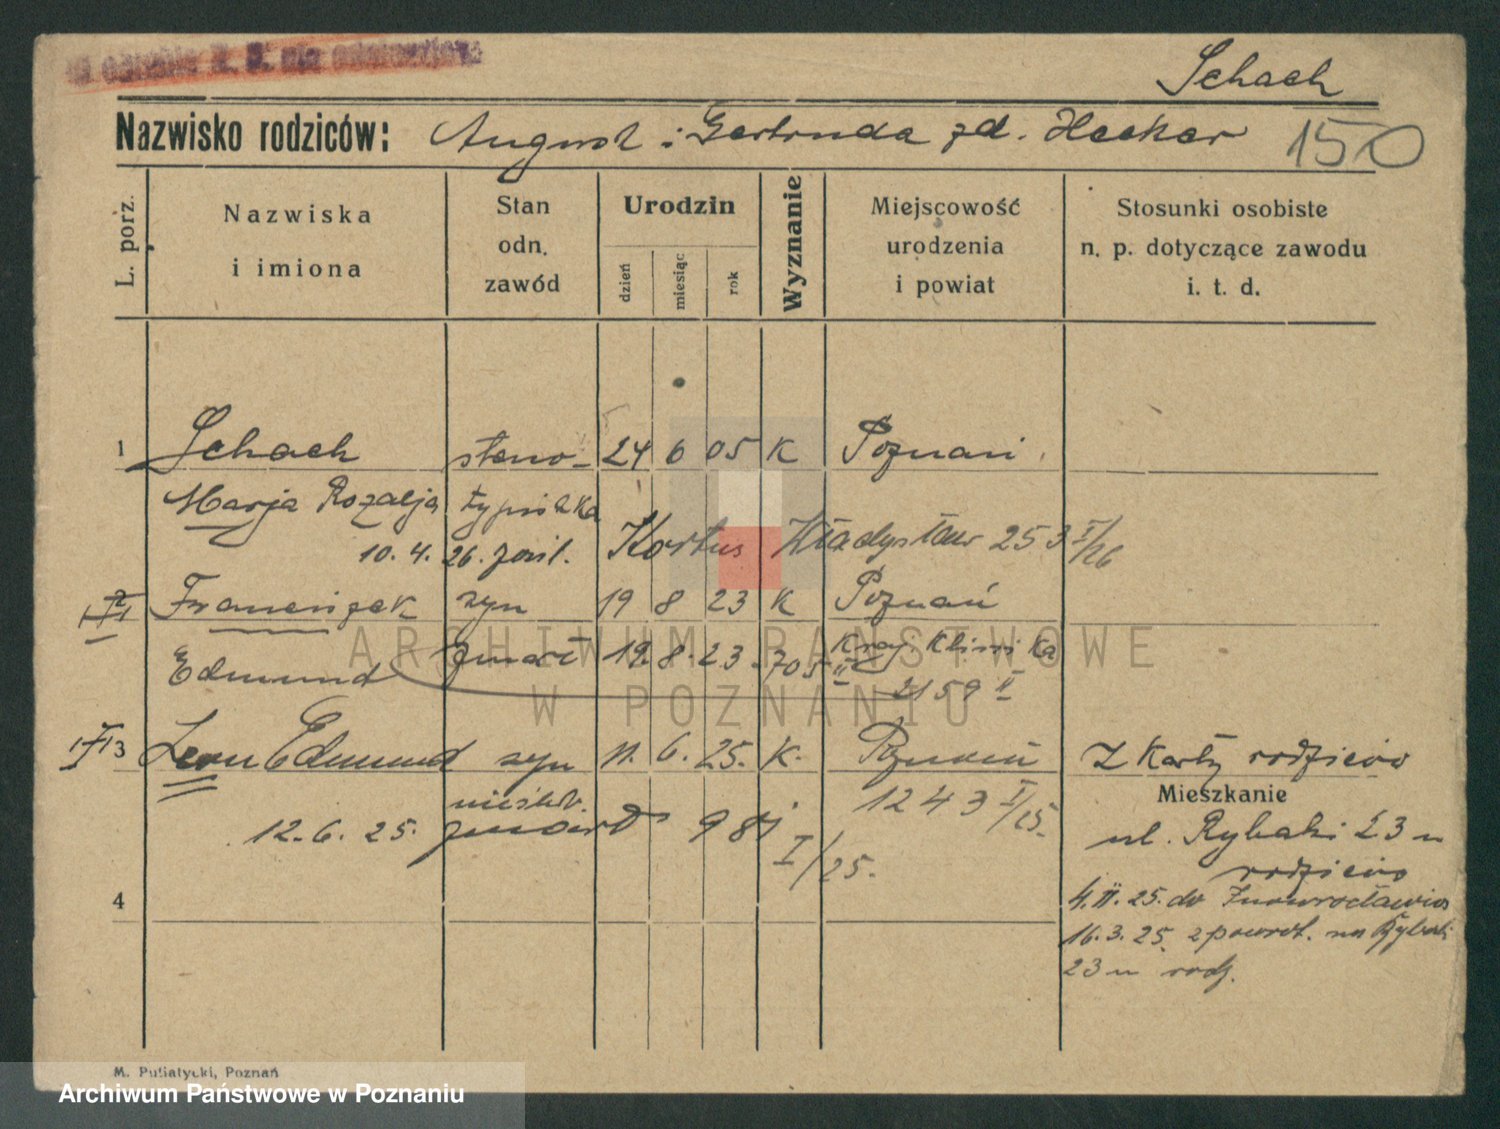 Schach
Nazwisko rodziców: August i Gertruda zd. Hecker 150
L. porz.
Nazwiska
i imiona
Stan
odn.
zawód
Urodzin
dzień
miesiąc
rok
Wyznanie
Miejscowość
urodzenia
i powiat
Stosunki osobiste
n. p. dotyczące zawodu
i. t. d.
1 Schach steno- 24 6 05 K Poznań
Marja Rozalja typistka
10. 4. 26. zaśl. Kortus Władysław 253 I/26
2 Franciszek syn 19 8 23 K Poznań
Edmund zmarł 19. 8. 23. 705 II Kraj. Klinika
2159 II
3 Leon Edmund syn 11. 6. 25. K. Poznań
nieślub. 1243 I/25.
12. 6. 25. zmarł 987 I/25.
Z karty rodziców
Mieszkanie
ul. Rybaki 23 u
rodziców
4. II. 25. do Inowrocławia
16. 3. 25. z powrot. na Rybaki
23 u rodz.
4
M. Putiatycki, Poznań
ARCHIWUM PAŃSTWOWE
W POZNANIU
Archiwum Państwowe w Poznaniu